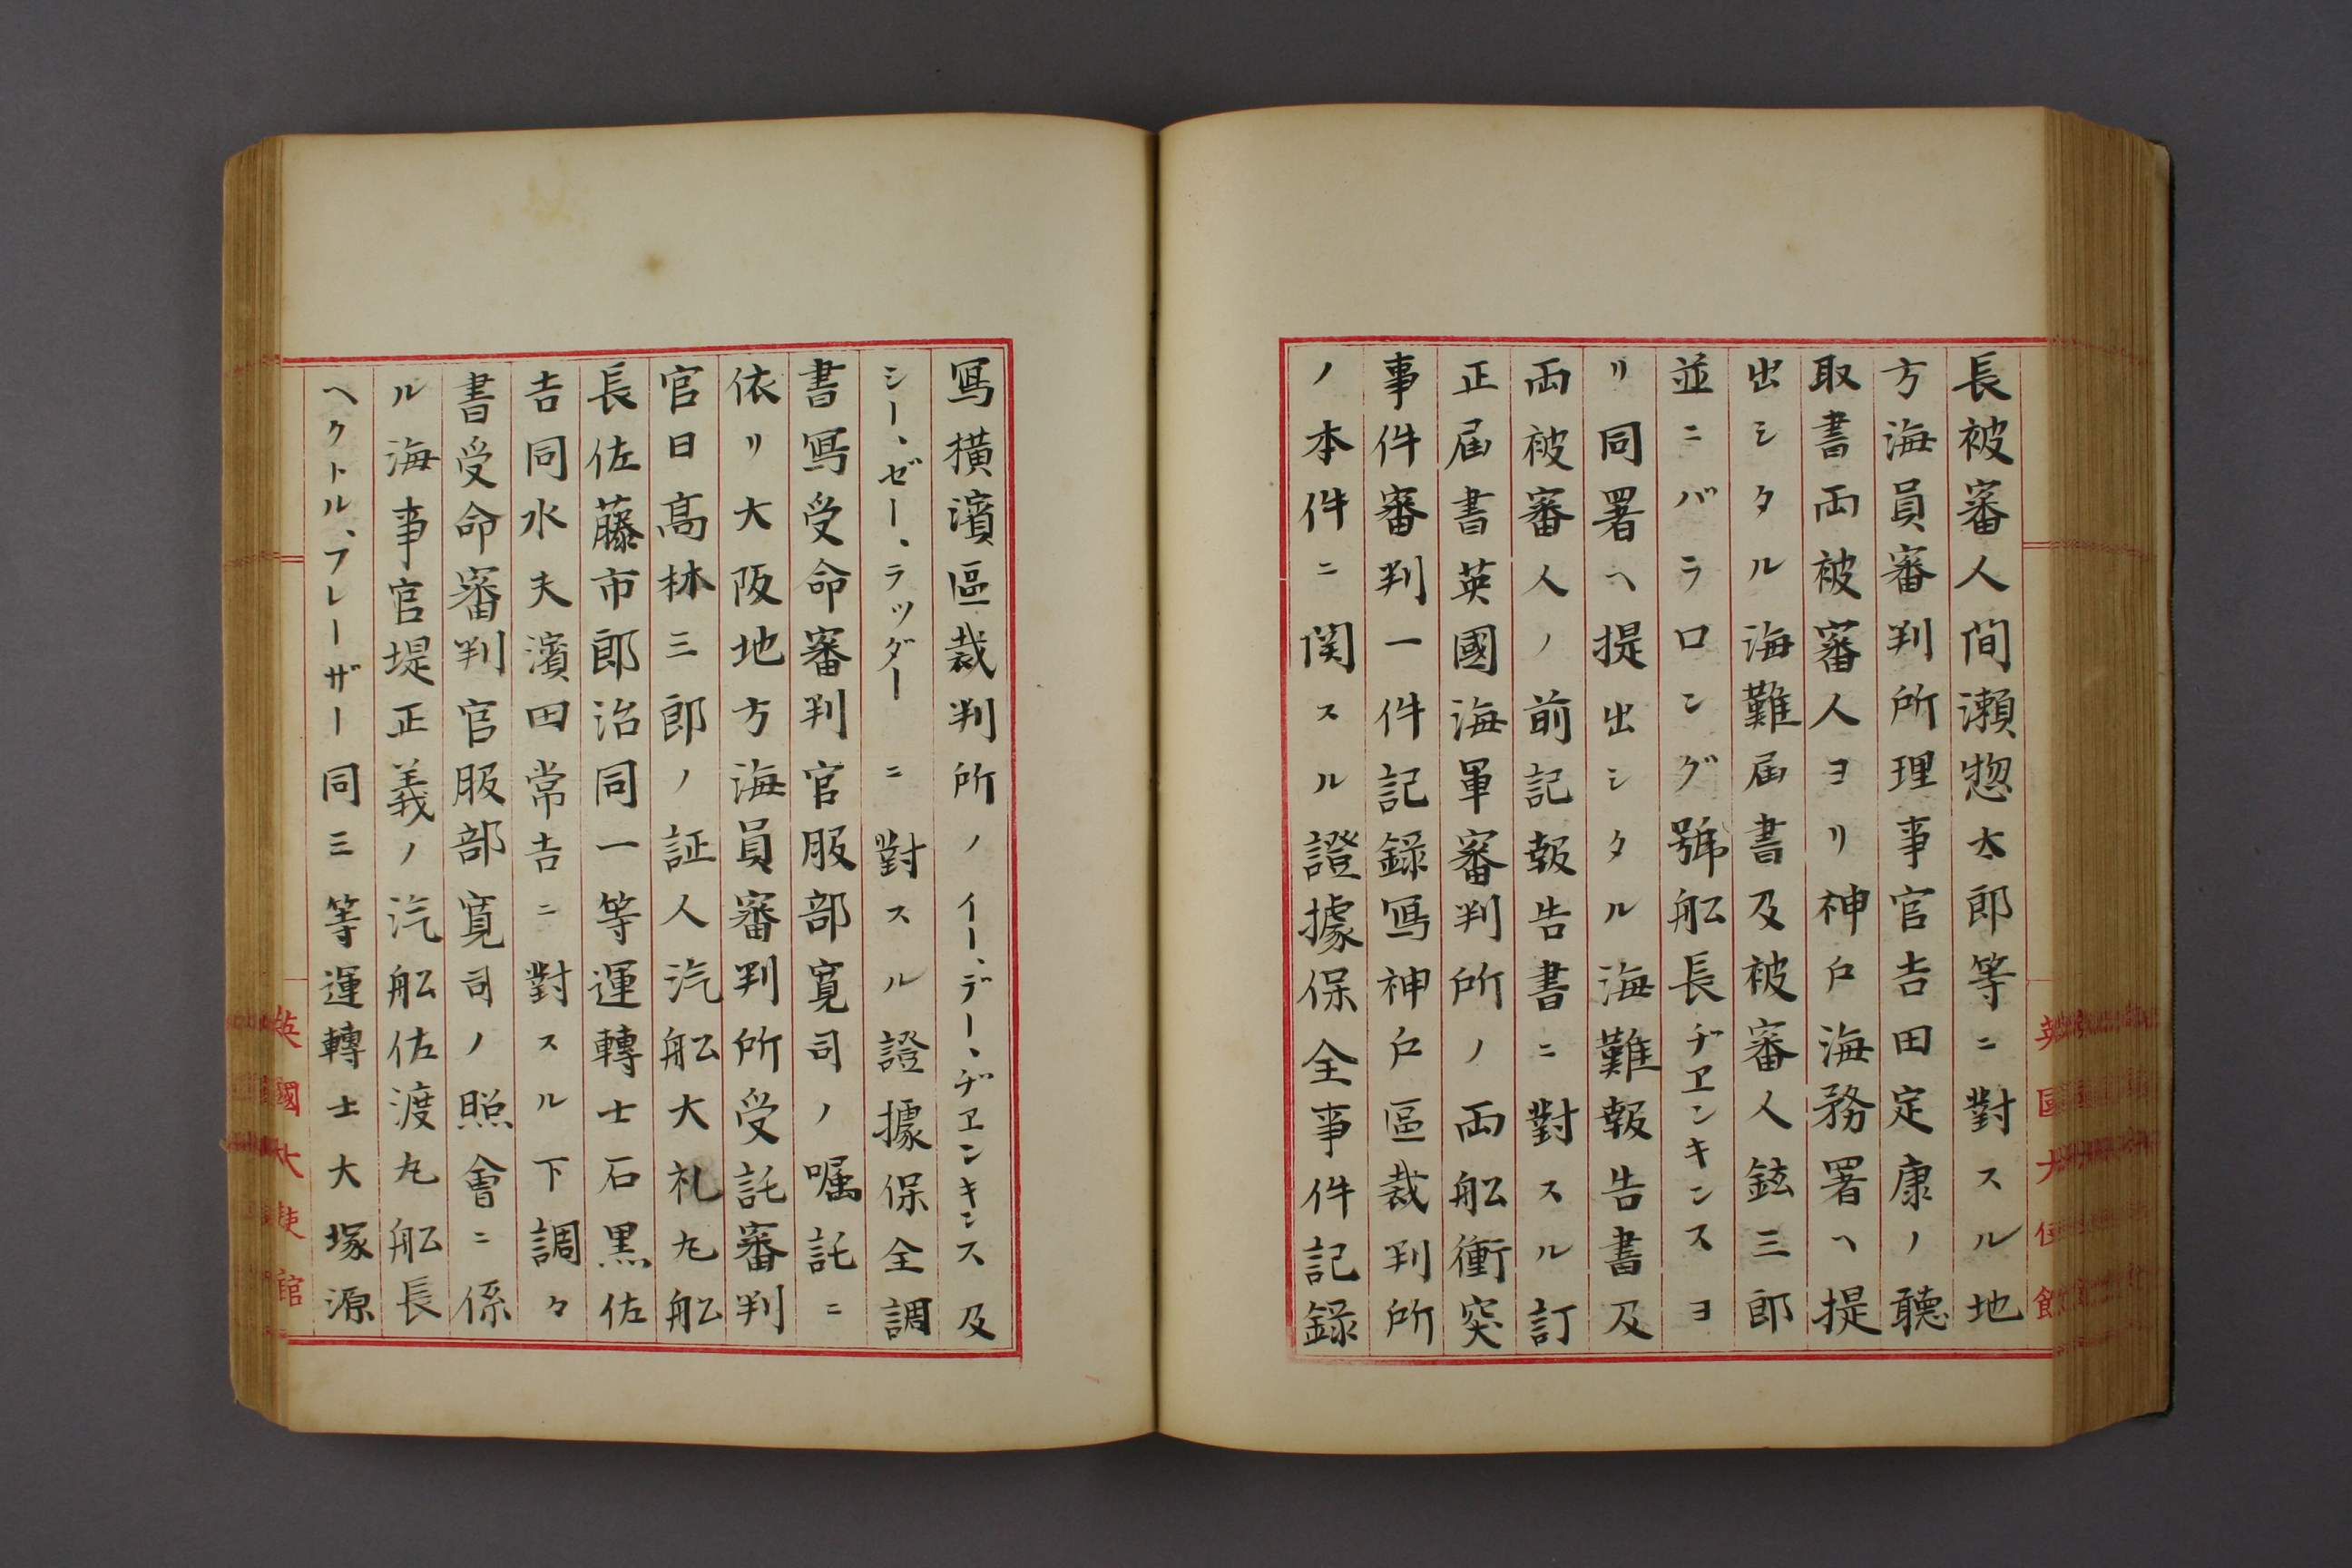 長被審人間瀬惣太郎等ニ對スル地
方海員審判所理事官吉田定康ノ聽
取書両被審人ヨリ神戸海務署ヘ提
出シタル海難届書及被審人鉉三郎
並ニバラロング號舩長ヂエンキンスヨ
リ同署ヘ提出シタル海難報告書及
両被審人ノ前記報告書ニ對スル訂
正届書英國海軍審判所ノ両舩衝突
事件審判一件記録冩神戸區裁判所
ノ本件ニ関スル證據保全事件記録
冩横濱區裁判所ノイー、デー、ヂエンキンス及
シー、ゼー、ラツダーニ對スル證據保全調
書冩受命審判官服部寛司ノ嘱託ニ
依リ大阪地方海員審判所受託審判
官日髙林三郎ノ証人汽舩大礼丸舩
長佐藤市郎治同一等運轉士石黒佐
吉同水夫濱田常吉ニ對スル下調々
書受命審判官服部寛司ノ照會ニ係
ル海事官堤正義ノ汽舩佐渡丸舩長
ヘクトル、フレーザー同三等運轉士大塚源
英國大使館
英國大使館